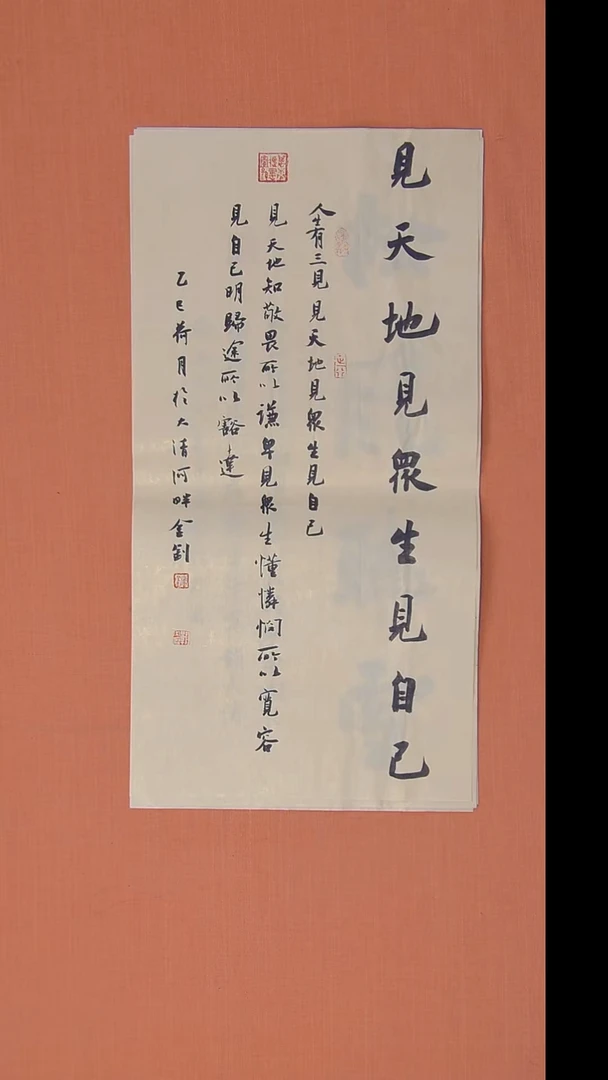 見天地見衆生見自己
人生有三見見天地見衆生見自己
見天地知敬畏所以謙卑見衆生懂憐憫所以寬容
見自己明歸途所以豁達
乙巳荷月於大清河畔金劍